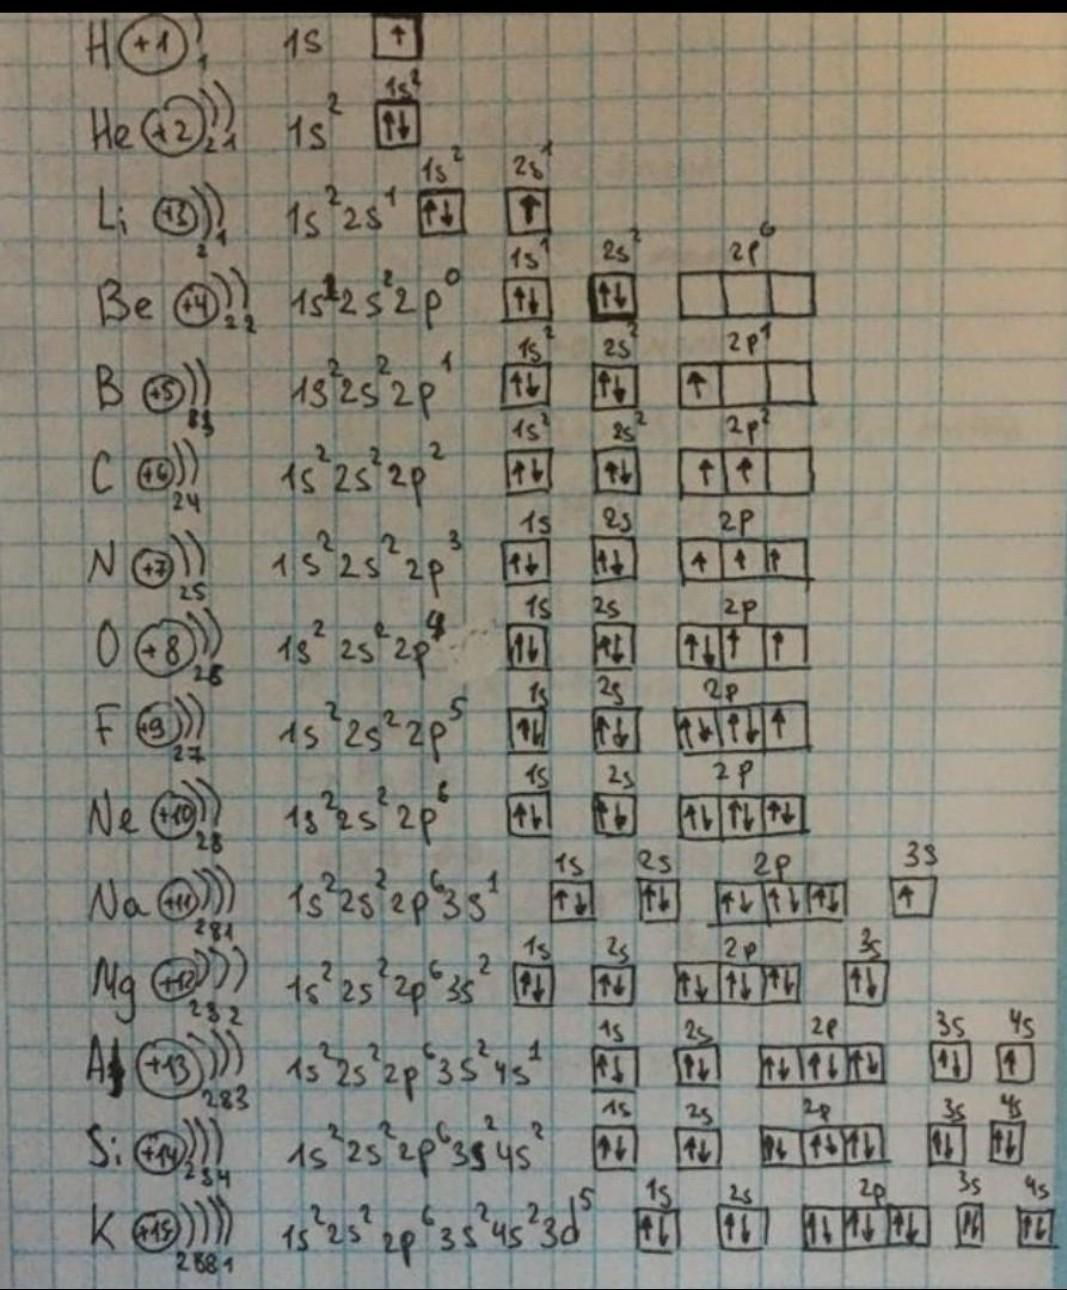 H +1 1 1s ↑
1s²
He +2 21 1s² ↑↓
1s² 2s¹
Li +3 21 1s²2s¹ ↑↓ ↑
1s¹ 2s² 2p⁶
Be +4 22 1s²2s²2p⁰ ↑↓ ↑↓
1s² 2s² 2p¹
B +5 1s²2s²2p¹ ↑↓ ↑↓ ↑
1s² 2s² 2p²
C +6 24 1s²2s²2p² ↑↓ ↑↓ ↑ ↑
1s 2s 2p
N +7 25 1s²2s²2p³ ↑↓ ↑↓ ↑ ↑ ↑
1s 2s 2p
O +8 26 1s²2s²2p⁴ ↑↓ ↑↓ ↑↓ ↑ ↑
1s 2s 2p
F +9 27 1s²2s²2p⁵ ↑↓ ↑↓ ↑↓ ↑↓ ↑
1s 2s 2p
Ne +10 28 1s²2s²2p⁶ ↑↓ ↑↓ ↑↓ ↑↓ ↑↓
1s 2s 2p 3s
Na +11 281 1s²2s²2p⁶3s¹ ↑↓ ↑↓ ↑↓ ↑↓ ↑↓ ↑
1s 2s 2p 3s
Mg +12 282 1s²2s²2p⁶3s² ↑↓ ↑↓ ↑↓ ↑↓ ↑↓ ↑↓
1s 2s 2p 3s 4s
Al +13 283 1s²2s²2p⁶3s²4s¹ ↑↓ ↑↓ ↑↓ ↑↓ ↑↓ ↑↓ ↑
1s 2s 2p 3s 4s
Si +14 284 1s²2s²2p⁶3s²4s² ↑↓ ↑↓ ↑↓ ↑↓ ↑↓ ↑↓ ↑↓
1s 2s 2p 3s 4s
K +15 2881 1s²2s²2p⁶3s²4s²3d⁵ ↑↓ ↑↓ ↑↓ ↑↓ ↑↓ ↑↓ ↑↓